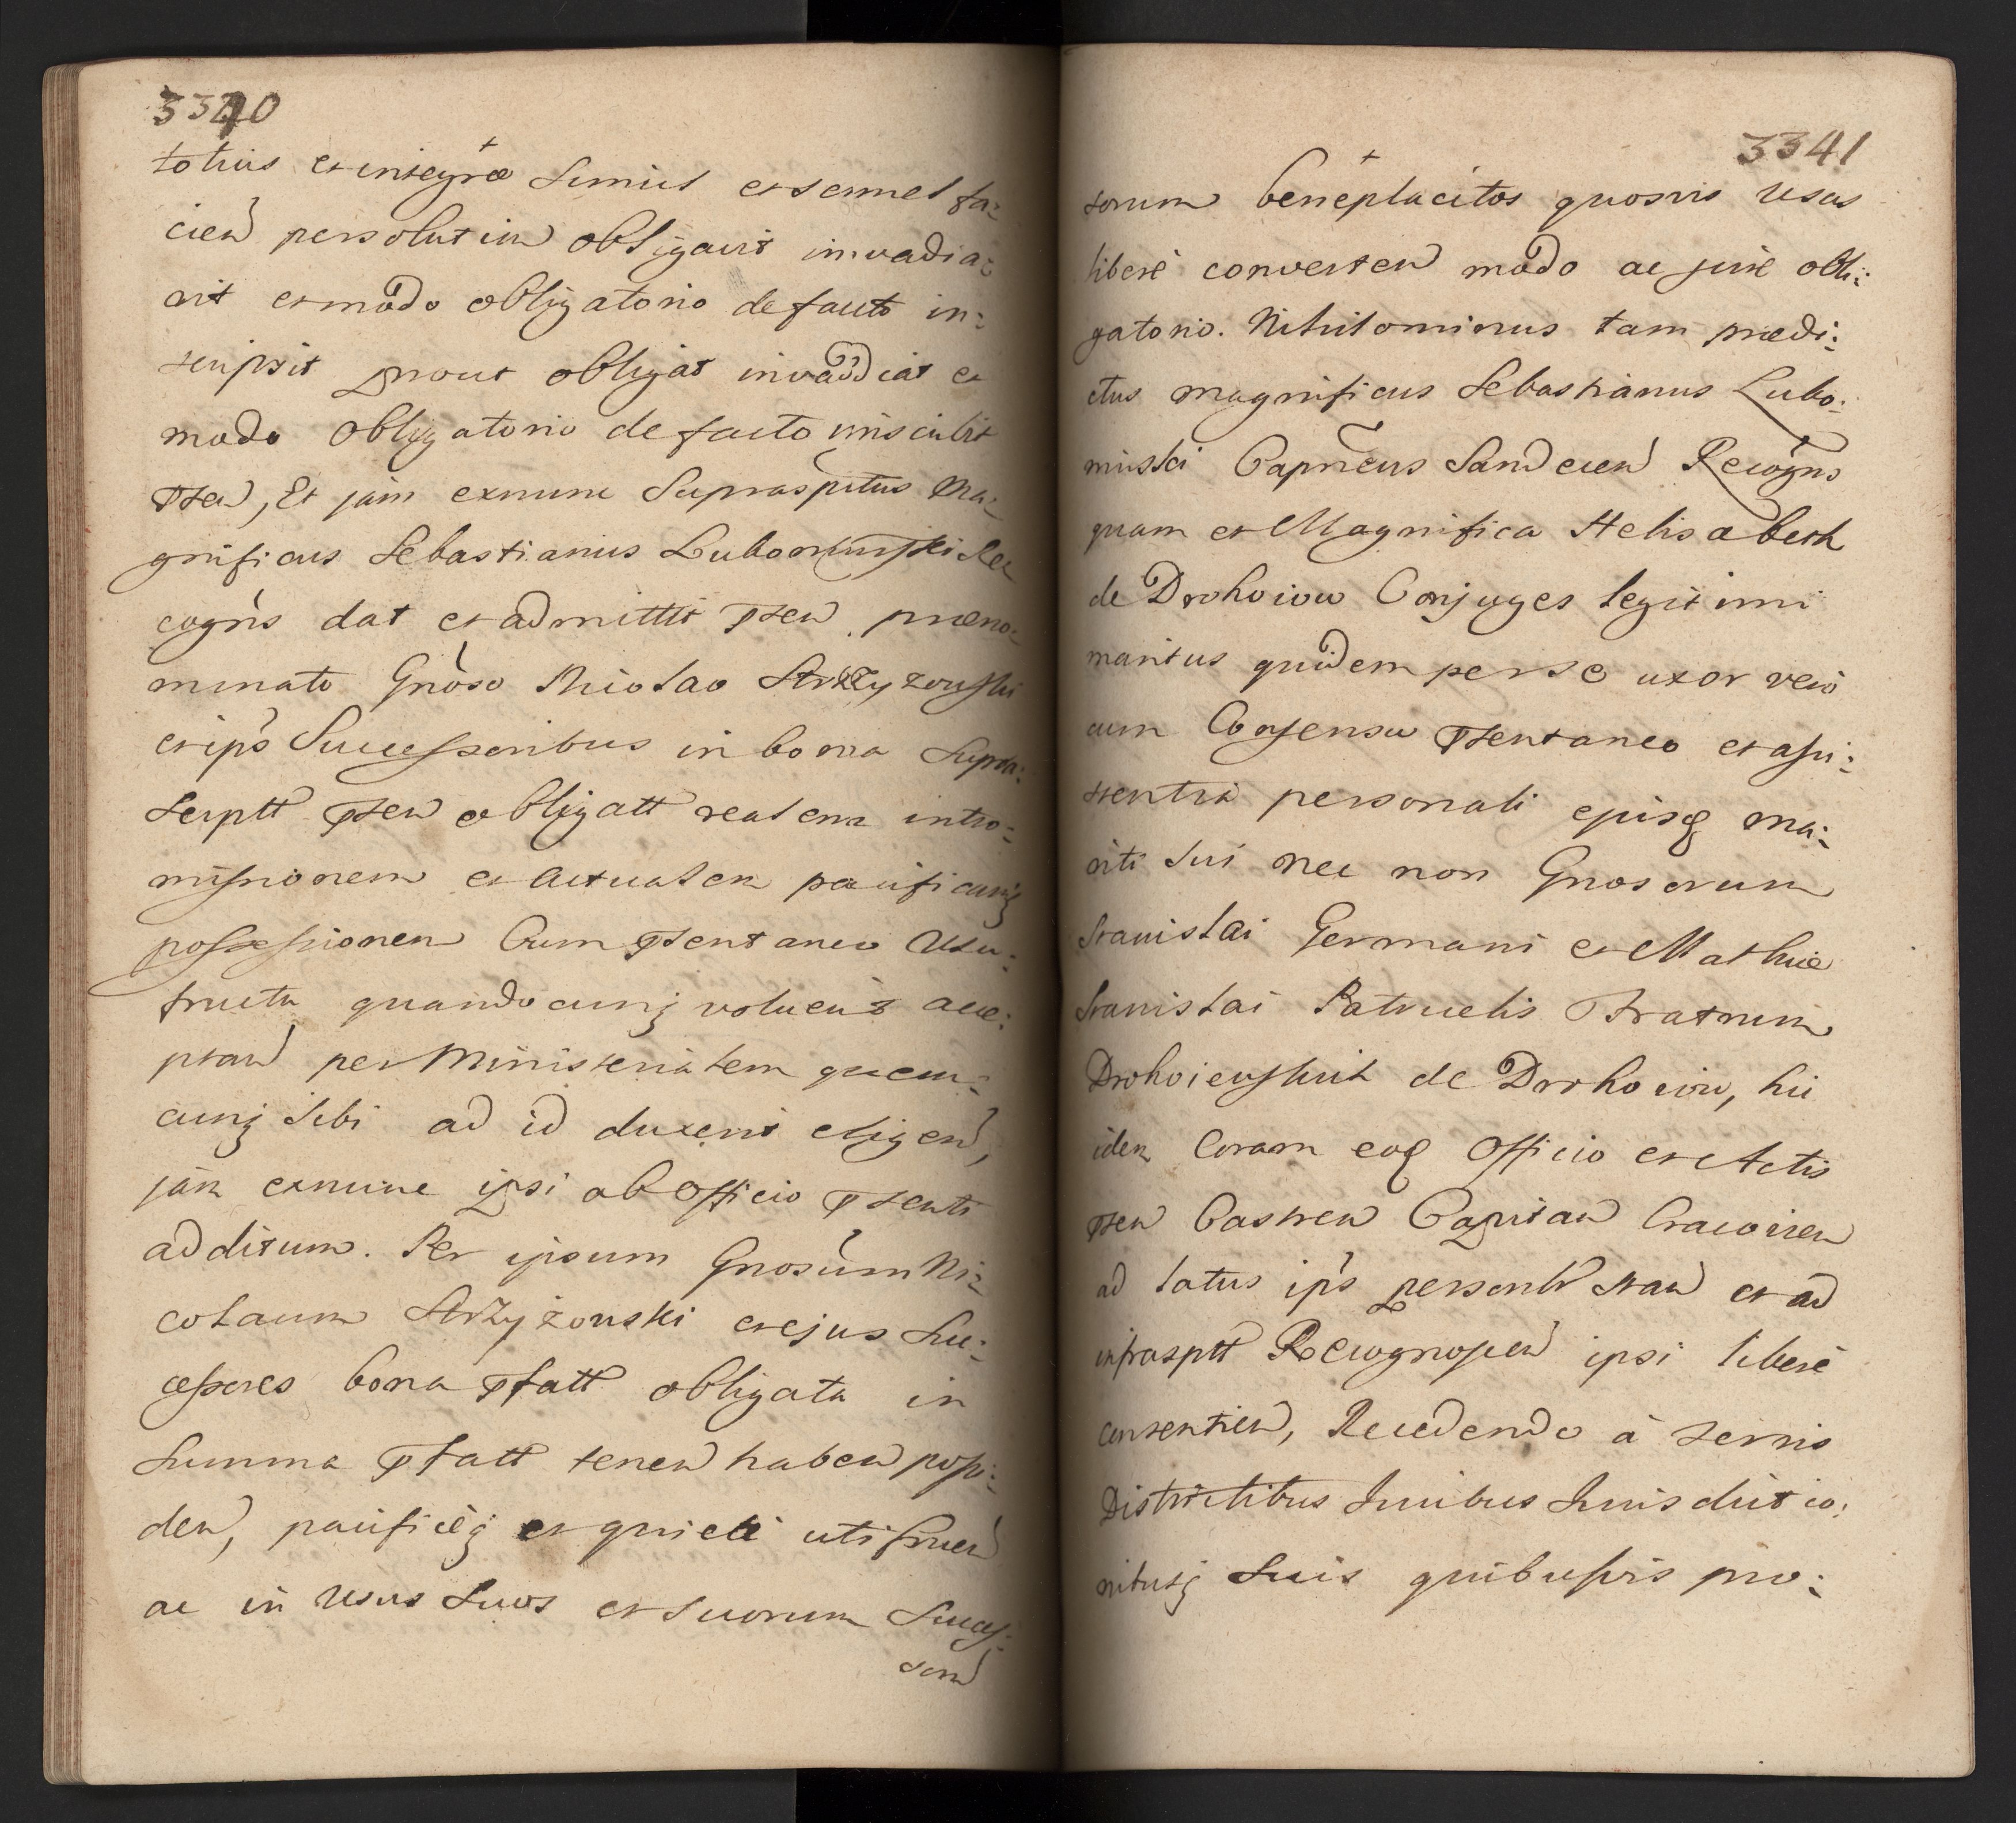 3340
totius et integræ Simul et semel fa:
cień persolutiń obligavit invadia:
vit et modo obligatorio de facto in:
scripsit prout obligat invadiat et
modo obligatorio de facto inscribit
Pseń, Et jam exnunc Suprasptus Ma:
gnificus Sebastianus Lubomirski Re
cogns dat et admittit Pseń præno:
minato Gnoso Nicolao Strzyzowski
et ips Successoribus in bona Supra:
scriptt Pseń obligatt realem intro:
missionem et actualem pacificamq
possessionem Cum Psentaneo Usu:
fructu quandocunq voluerit acce:
ptań per Ministerialem quem:
cunq Sibi ad id duxerit eligeń,
jam exnunc ipsi ab Officio Psenti
additum. Per ipsum Gnosum Ni:
colaum Strzyżowski et ejus Suc:
cessores bona Pfatt obligata in
Summa Pfatt teneń habeń possi:
deń, pacificeq et quiete uti frueń
ac in Usus Suos et Suorum Succes:
soru
3341
sorum beneplacitos quosvis Usus
liberè converteń modo ac jure obli:
gatorio. Nihilominus tam prædi:
ctus magnificus Sebastianus Lubo:
mirski Capneus Sandeceń Recogns
quam et Magnifica Helisabeth
de Drohoiow Conjuges legitimi
maritus quidem per se uxor vero
cum Consensu Psentaneo et assi:
stentia personali ejusq ma:
riti Sui nec non Gnosorum
Stanislai Germani et Mathiæ
Stanislai Patruelis Fratrum
Drohoiewskich de Drohoiow, hic
idem Coram eoq Officio et Actis
Pseń Castreń Capitań Cracovień
ad latus ips personlr stań et ad
infrasptt Recognosceń ipsi liberè
consentień, Recedendo à terris
Districtibus Juribus Jurisdictio:
nibusq Suis quibusvis pro: